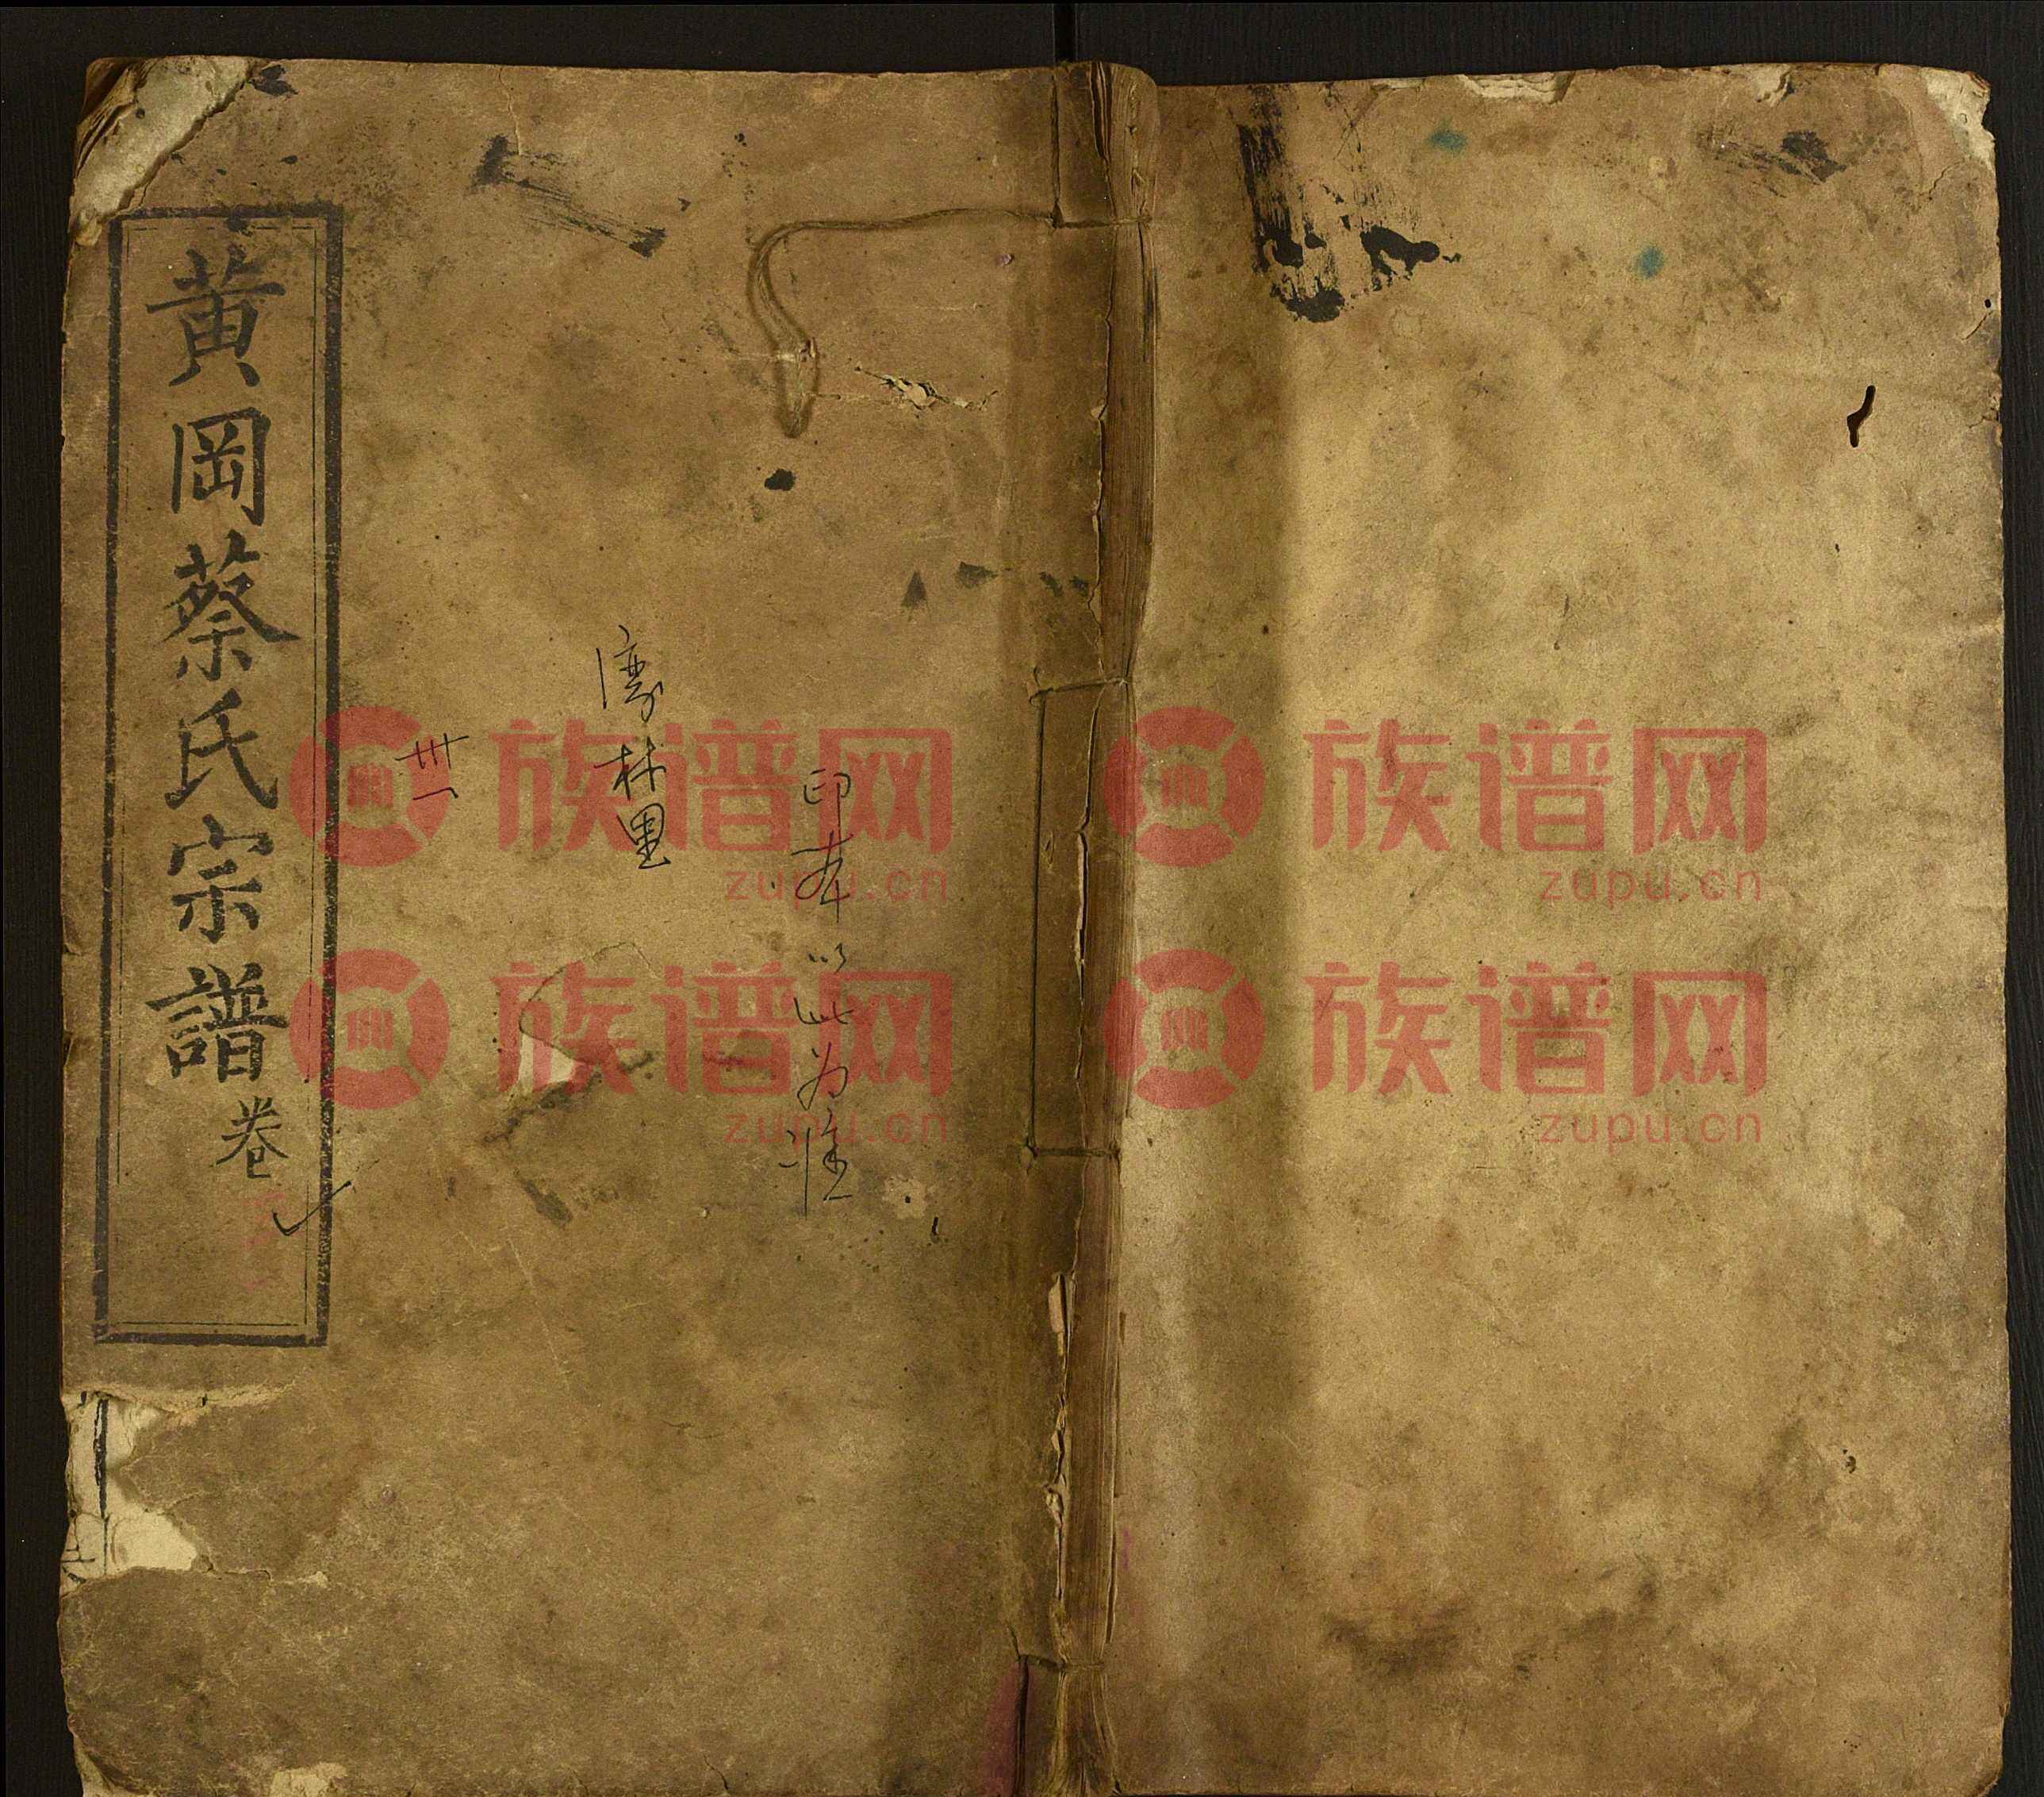 黄岡蔡氏宗譜卷
卅一
林里
印本以此为准
族谱网
zupu.cn
族谱网
zupu.cn
族谱网
zupu.cn
族谱网
zupu.cn